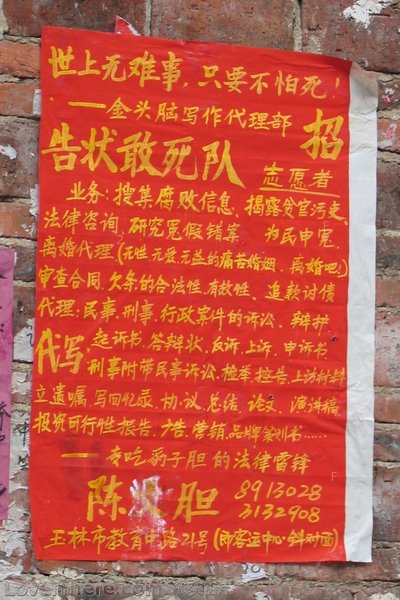 世上无难事，只要不怕死！
——金头脑写作代理部
招
告状敢死队 志愿者
业务：搜集腐败信息、揭露贪官污吏、
法律咨询、研究冤假错案、为民申冤、
离婚代理（无性、无爱、无益的痛苦婚姻，离婚吧！）
审查合同、欠条的合法性、有效性、追款讨债
代理：民事、刑事、行政案件的诉讼、辩护
代写：起诉书、答辩状、反诉、上诉、申诉书、
刑事附带民事诉讼、检举、控告、上访材料
立遗嘱、写回忆录、协议、总结、论文、演讲稿、
投资可行性报告、广告、营销、品牌策划书……
——专吃豹子胆的法律雷锋
陈 胆 8913028
3132908
玉林市教育中路21号（即客运中心斜对面）